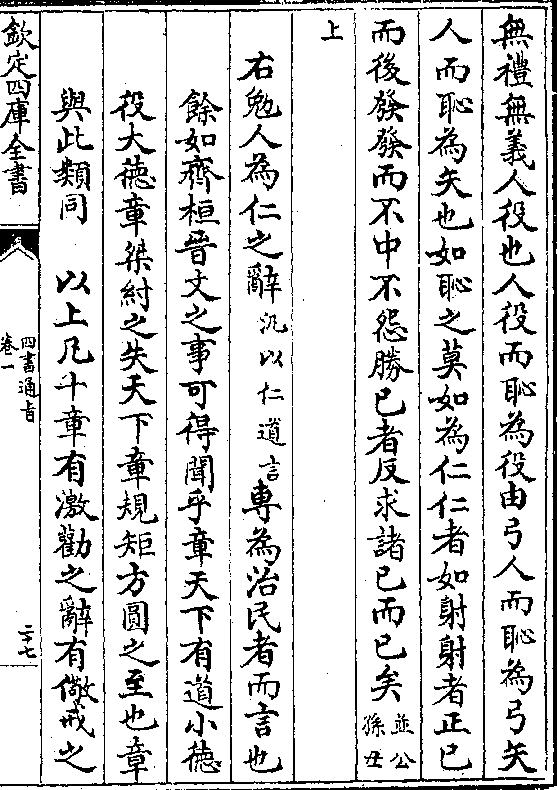 無禮無義人役也人役而恥為役由弓人而恥為弓矢
人而恥為矢也如恥之莫如為仁仁者如射射者正己
而後發發而不中不怨勝己者反求諸己而已矣並公孫丑
上
右勉人為仁之辭汎以仁道言專為治民者而言也
餘如齊桓晉文之事可得聞乎章天下有道小徳
役大徳章桀紂之失天下章規矩方圓之至也章
與此類同 以上凡十章有激勸之辭有儆戒之
欽定四庫全書
四書通旨
卷一
二十七